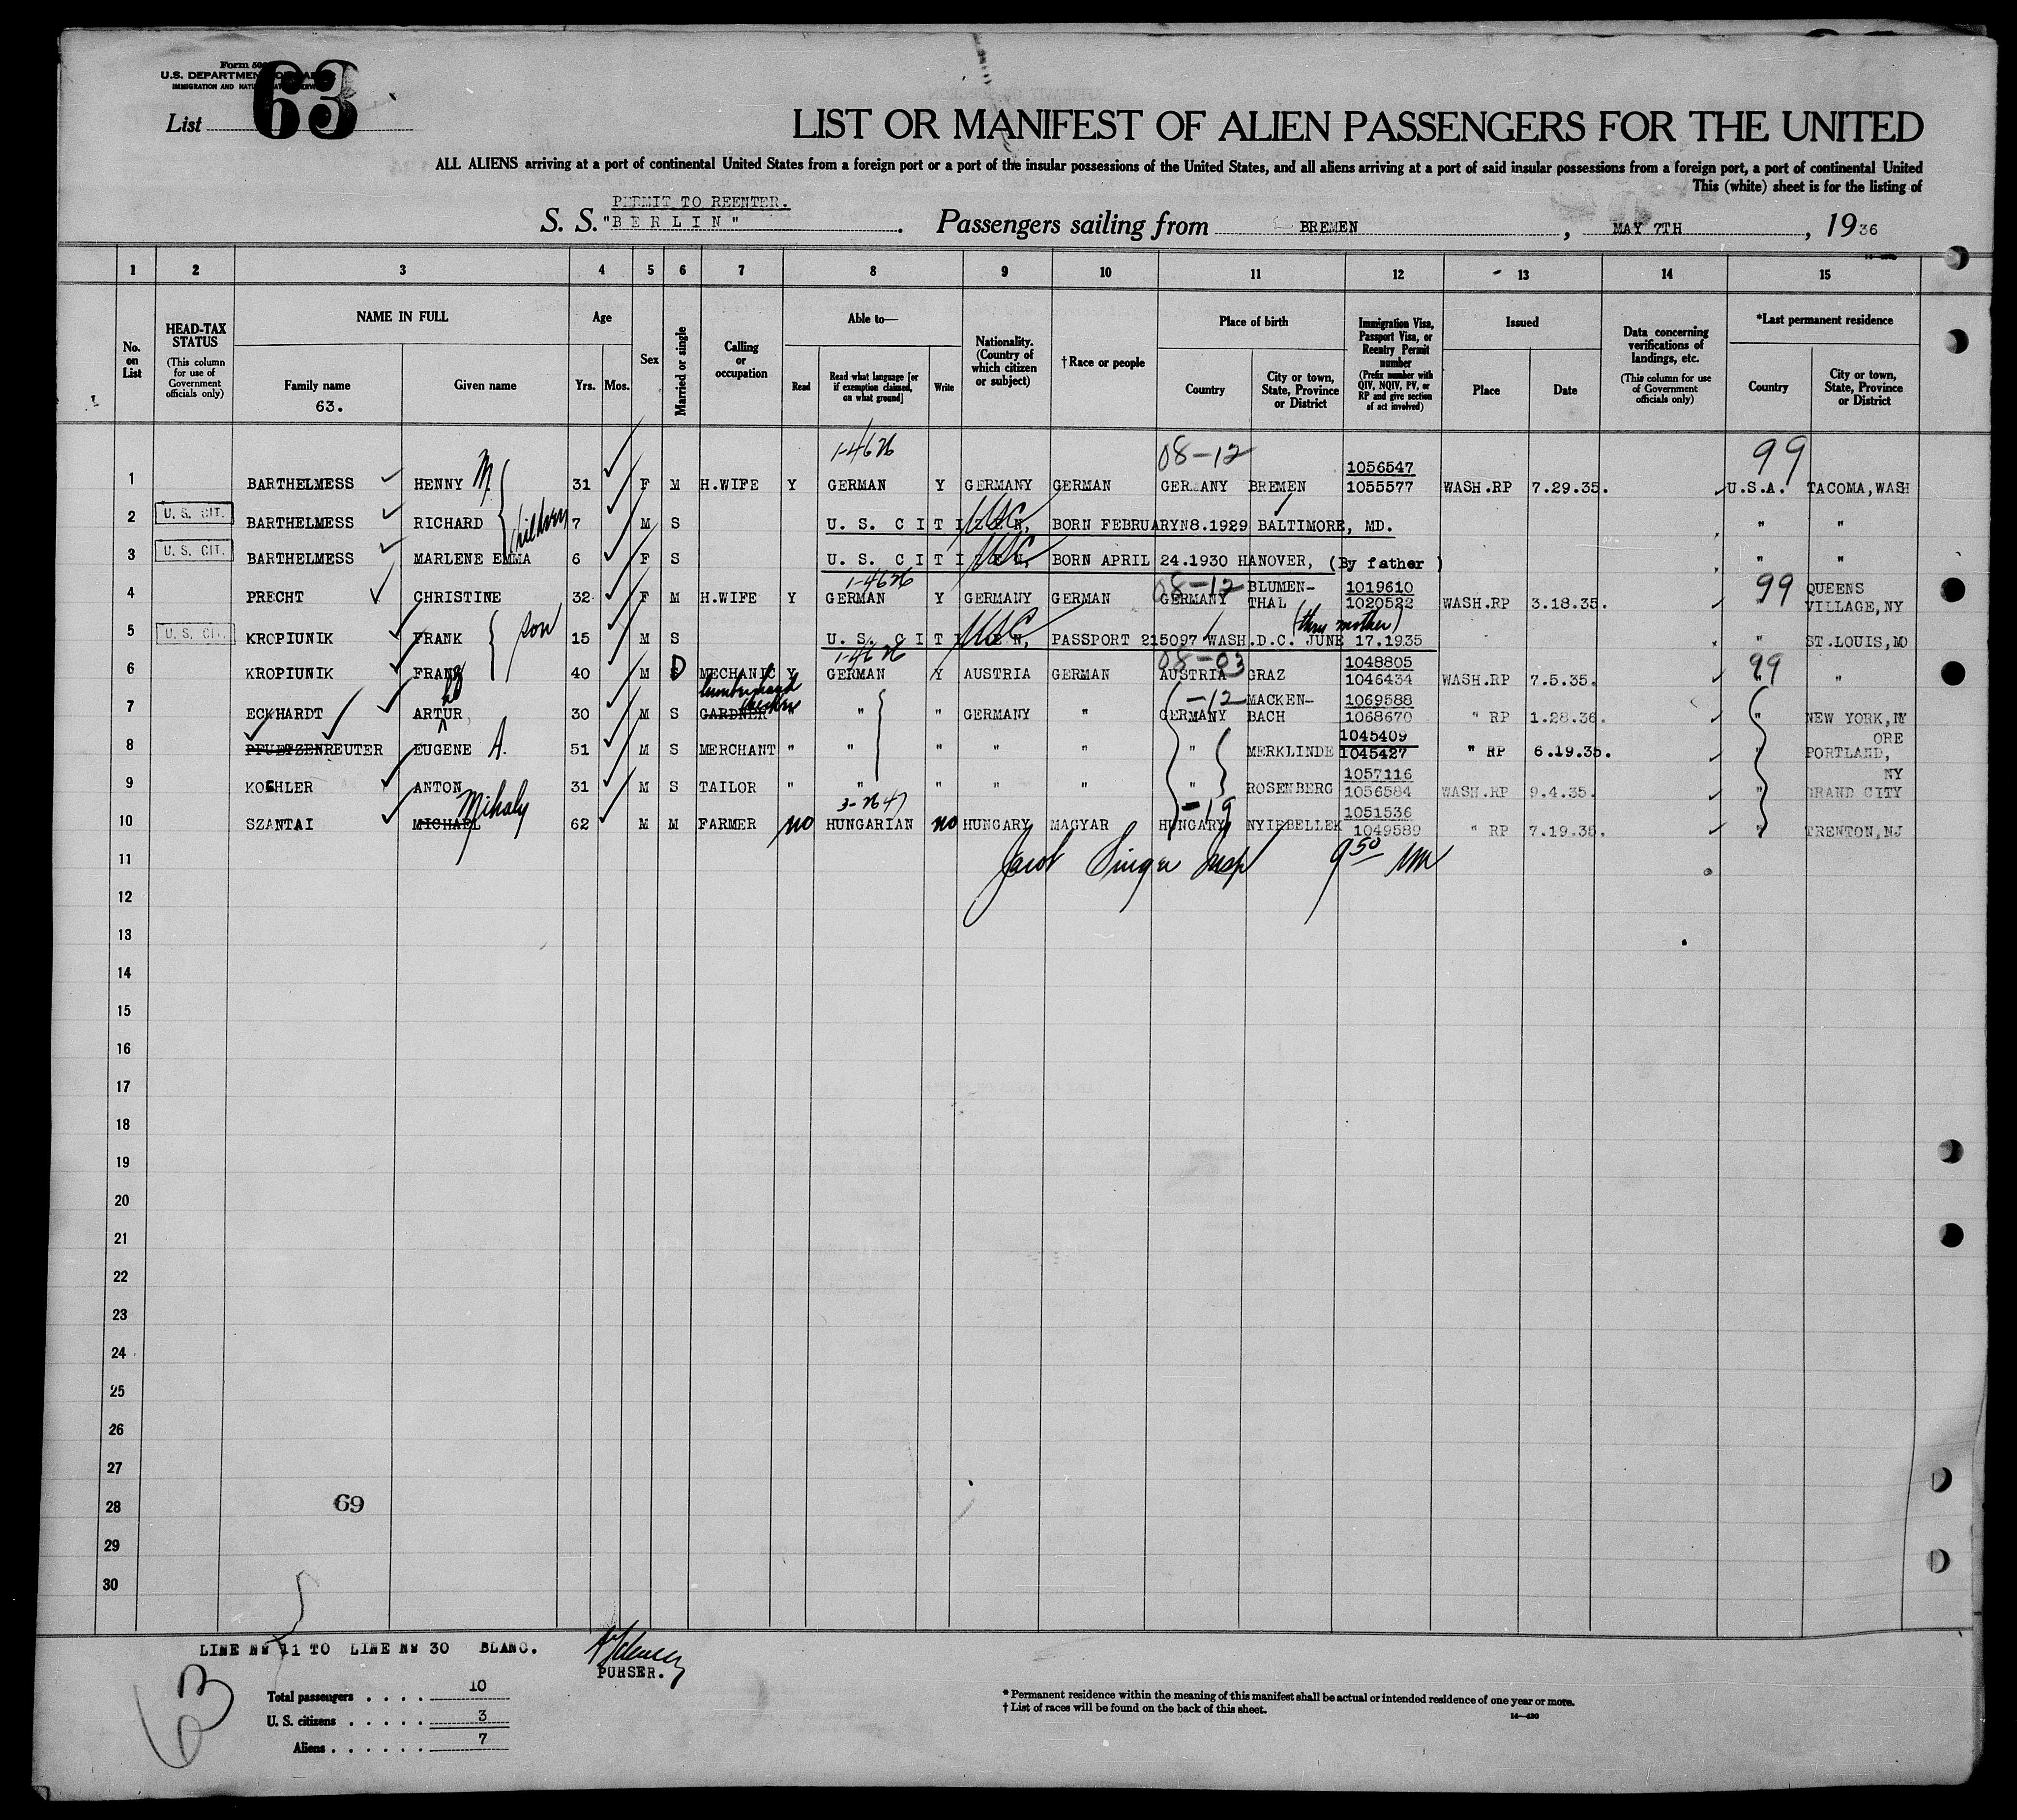 Form 500
U.S. DEPARTMENT OF LABOR
IMMIGRATION AND NATURALIZATION SERVICE
List 63
LIST OR MANIFEST OF ALIEN PASSENGERS FOR THE UNITED
ALL ALIENS arriving at a port of continental United States from a foreign port or a port of the insular possessions of the United States, and all aliens arriving at a port of said insular possessions from a foreign port, a port of continental United
This (white) sheet is for the listing of
PERMIT TO REENTER.
S. S. "BERLIN". Passengers sailing from BREMEN, MAY 7TH, 1936
1 2 3 4 5 6 7 8 9 10 11 12 13 14 15
No. on List
HEAD-TAX STATUS (This column for use of Government officials only)
NAME IN FULL
Family name
63.
Given name
Age
Yrs. Mos.
Sex
Married or single
Calling or occupation
Able to—
Read
Read what language [or if exemption claimed, on what ground]
Write
Nationality. (Country of which citizen or subject)
†Race or people
Place of birth
Country
City or town, State, Province or District
Immigration Visa, Passport Visa, or Reentry Permit number (Prefix number with QIV, NQIV, PV, or RP and give section of act involved)
Issued
Place
Date
Data concerning verifications of landings, etc. (This column for use of Government officials only)
*Last permanent residence
Country
City or town, State, Province or District
1-4626 08-12 1056547 99
1 BARTHELMESS HENNY M. 31 F M H.WIFE Y GERMAN Y GERMANY GERMAN GERMANY BREMEN 1055577 WASH.RP 7.29.35. U.S.A. TACOMA,WASH
2 U. S. CIT. BARTHELMESS RICHARD children 7 M S U. S. CITIZEN, USC BORN FEBRUARYN8.1929 BALTIMORE, MD. " "
3 U. S. CIT. BARTHELMESS MARLENE EMMA 6 F S U. S. CITIZEN, USC BORN APRIL 24.1930 HANOVER, (By father) " "
1-4626 08-12 BLUMEN- 1019610 99 QUEENS
4 PRECHT CHRISTINE 32 F M H.WIFE Y GERMAN Y GERMANY GERMAN GERMANY THAL 1020522 WASH.RP 3.18.35. VILLAGE,NY
(thru mother)
5 U. S. CIT. KROPIUNIK FRANK son 15 M S U. S. CITIZEN, USC PASSPORT 215097 WASH.D.C. JUNE 17.1935 " ST.LOUIS,MO
1-4626 08-03 1048805 99
6 KROPIUNIK FRANZ 40 M S D MECHANIC Y GERMAN Y AUSTRIA GERMAN AUSTRIA GRAZ 1046434 WASH.RP 7.5.35. "
-12 MACKEN- 1069588
7 ECKHARDT ARTUR 30 M S GARDNER " " " GERMANY " GERMANY BACH 1068670 " RP 1.28.36. " NEW YORK,NY
1045409 ORE
8 PFUETZENREUTER EUGENE A. 51 M S MERCHANT " " " " " " MERKLINDE 1045427 " RP 6.19.35. " PORTLAND,
1057116 NY
9 KOEHLER ANTON 31 M S TAILOR " " " " " " ROSENBERG 1056584 WASH.RP 9.4.35. " GRAND CITY
Mihaly 3-2647 -19 1051536
10 SZANTAI MICHAEL 62 M M FARMER no HUNGARIAN no HUNGARY MAGYAR HUNGARY NYIRBELLEK 1049589 " RP 7.19.35. " TRENTON,NJ
11 Jacob Singer Insp 9 50
12
13
14
15
16
17
18
19
20
21
22
23
24
25
26
27
28 69
29
30
LINE No 11 TO LINE No 30 BLANC.
PURSER.
63
Total passengers . . . . 10
U. S. citizens . . . . . 3
Aliens . . . . . . 7
* Permanent residence within the meaning of this manifest shall be actual or intended residence of one year or more.
† List of races will be found on the back of this sheet.
14—430